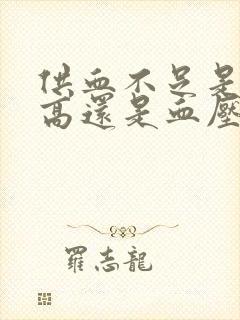 供血不足是
高還是血壓
羅志龍